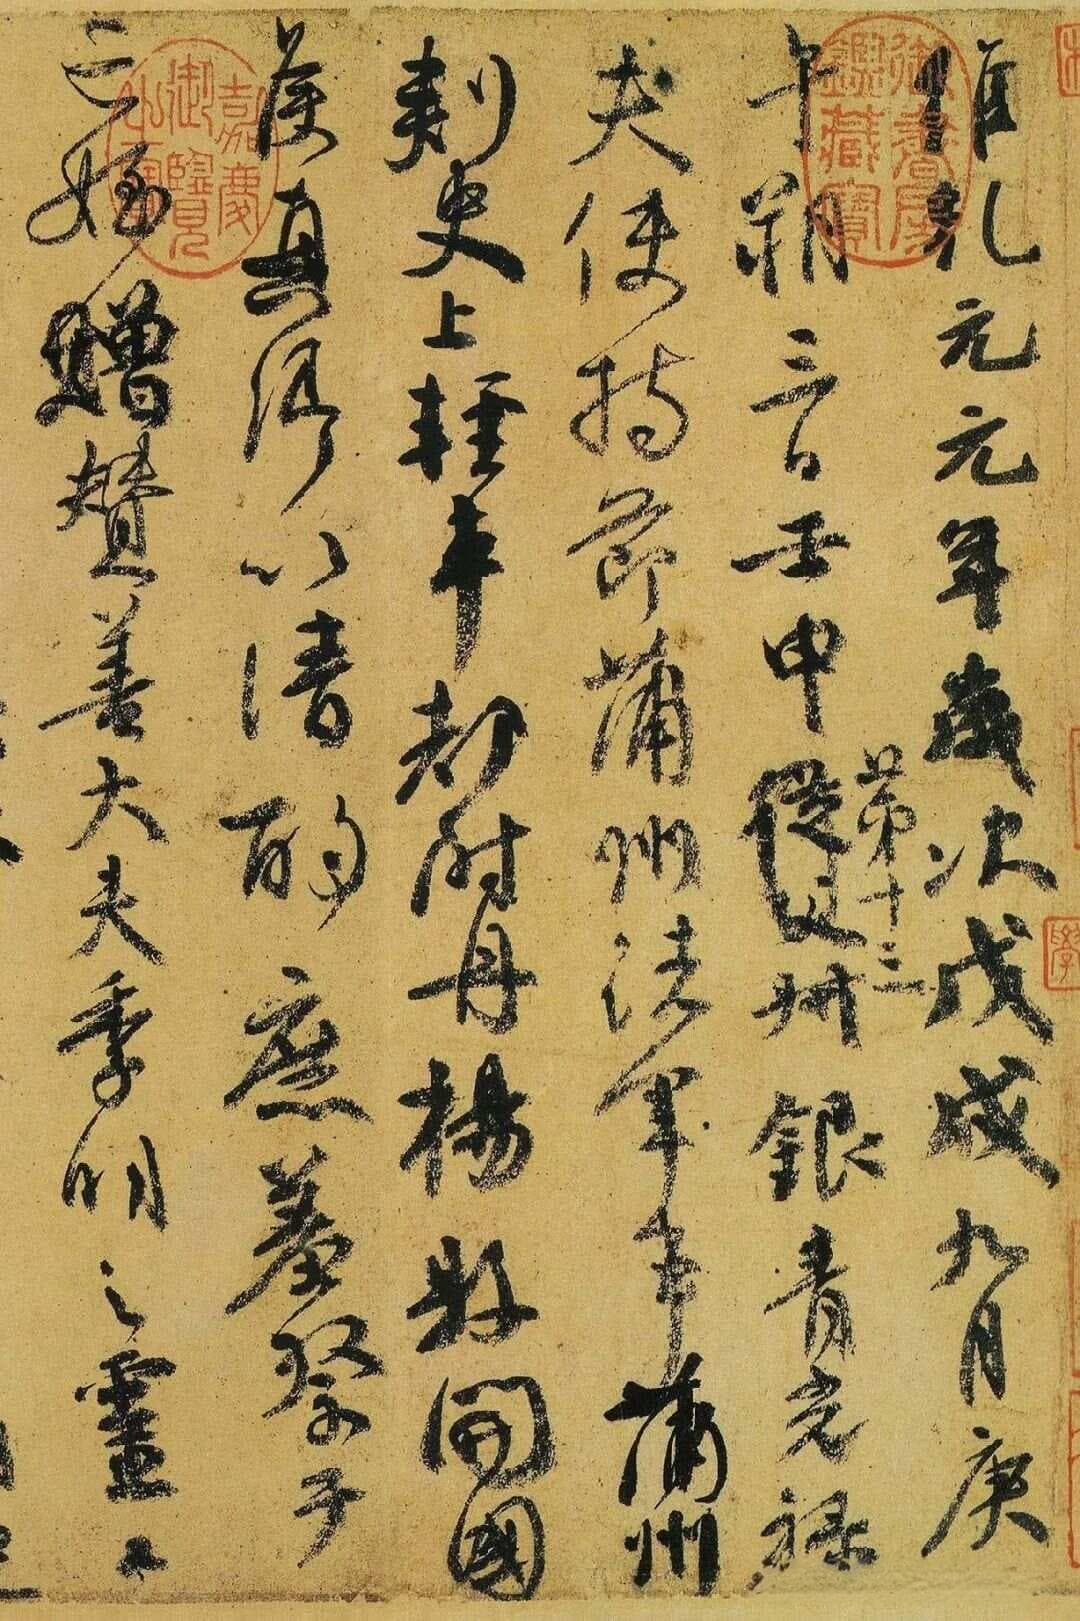 維乾元元年歲次戊戌九月庚
午朔三日壬申第十三從父叔銀青光祿
夫使持節蒲州諸軍事蒲州
刺史上輕車都尉丹楊縣開國
侯真卿以清酌庶羞祭于
亡姪贈贊善大夫季明之靈
御書房鑒藏寶
嘉慶御覽之寶